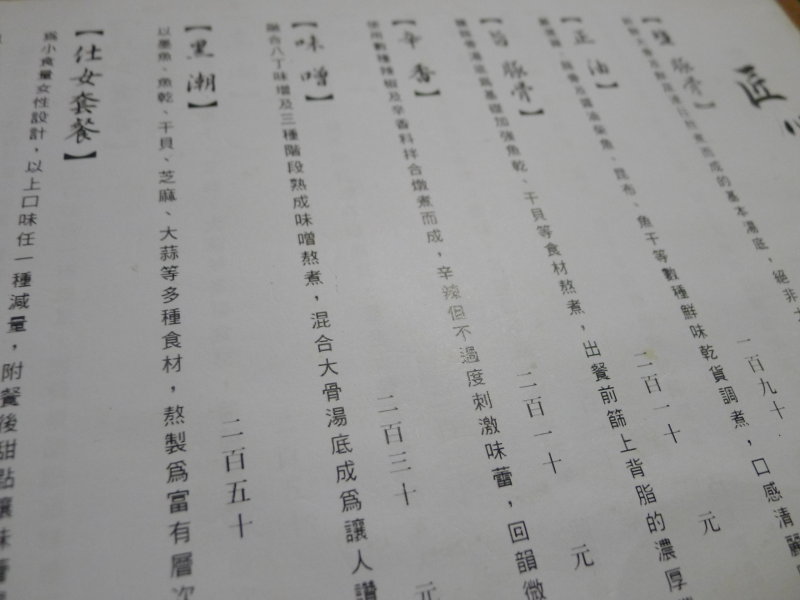 匠
【鹽豚骨】
而成的基本湯底，絕非
【正油】 一百九十
豚骨及醬油柴魚、昆布、魚干等數種鮮味乾貨調煮，口感清麗
【旨豚骨】 二百一十 元
湯底為基礎加強魚乾、干貝等食材熬煮，出餐前篩上背脂的濃厚
【辛香】 二百一十 元
使用數種辣椒及辛香料拌合燉煮而成，辛辣但不過度刺激味蕾，回韻微
【味噌】 二百三十 元
融合八丁味增及三種階段熟成味噌熬煮，混合大骨湯底成為讓人讚
【黑潮】 二百五十
以墨魚、魚乾、干貝、芝麻、大蒜等多種食材，熬製為富有層次
【仕女套餐】
為小食量女性設計，以上口味任一種減量，附餐後甜點讓味蕾